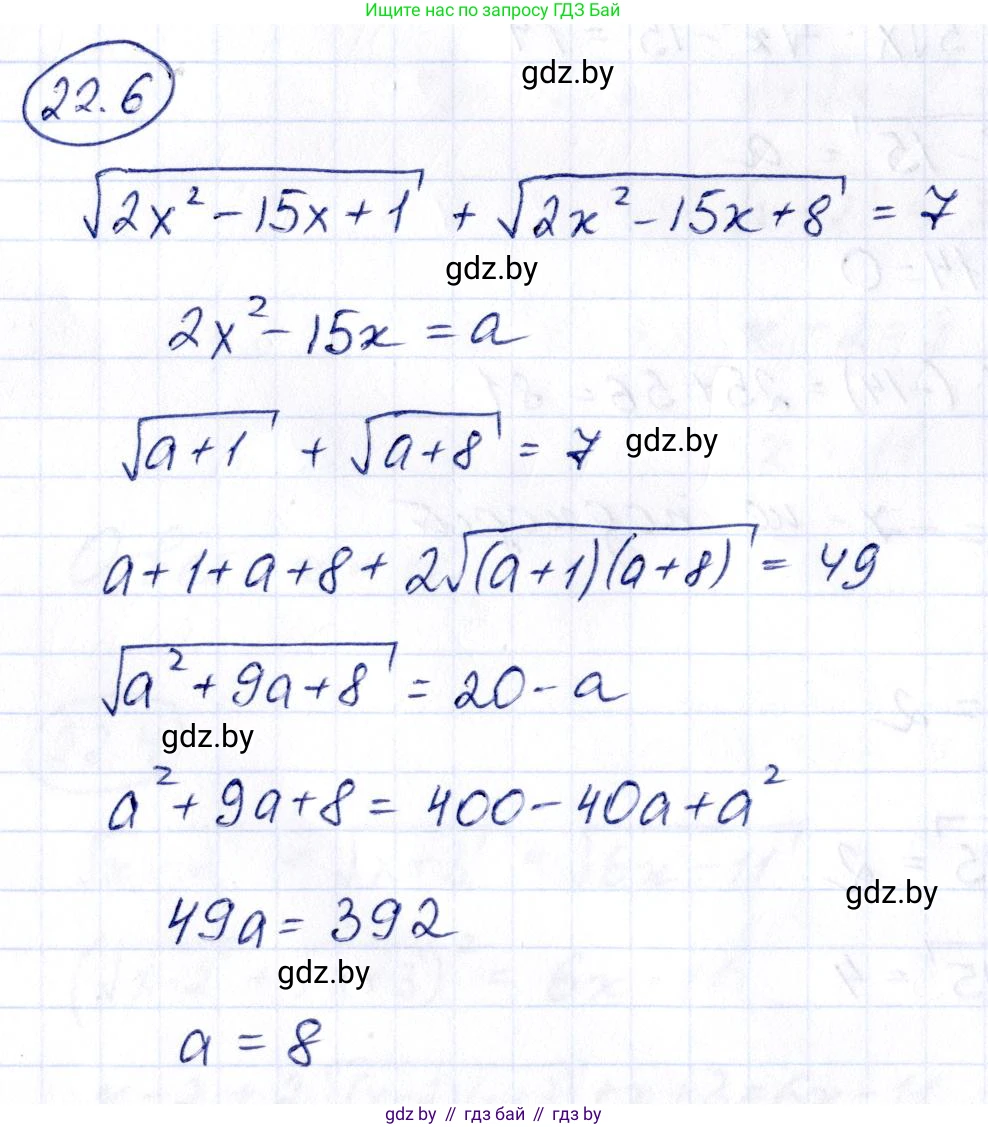 Ищите нас по запросу ГДЗ Бай
22.6
gdz.by
√(2x² - 15x + 1) + √(2x² - 15x + 8) = 7
gdz.by
2x² - 15x = a
√(a + 1) + √(a + 8) = 7 gdz.by
a + 1 + a + 8 + 2√((a + 1)(a + 8)) = 49
√(a² + 9a + 8) = 20 - a
gdz.by
a² + 9a + 8 = 400 - 40a + a²
gdz.by
49a = 392
gdz.by
a = 8
gdz.by // гдз бай // гдз by